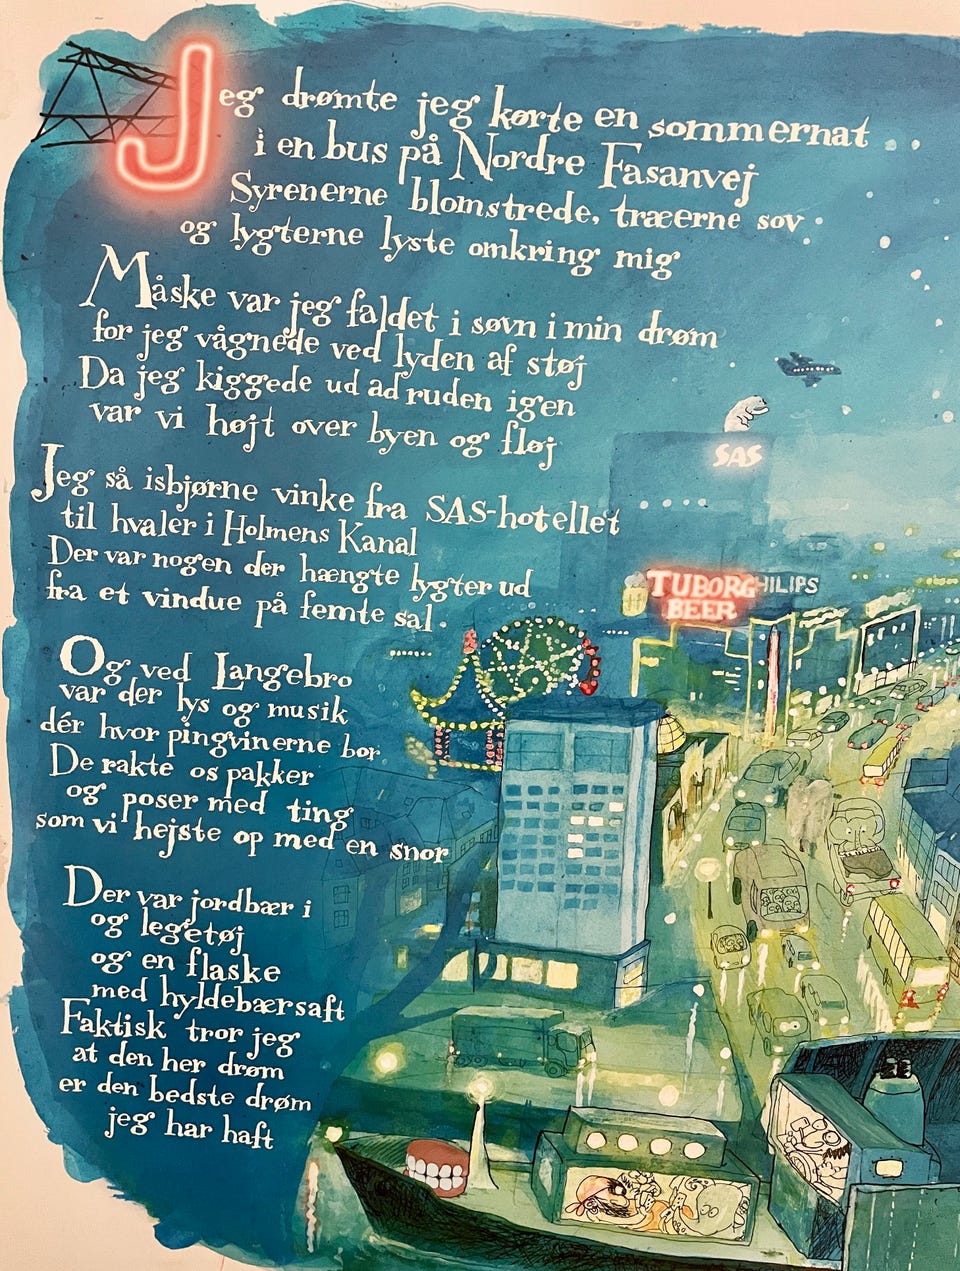 Jeg drømte jeg kørte en sommernat ...
i en bus på Nordre Fasanvej
Syrenerne blomstrede, træerne sov.
og lygterne lyste omkring mig
Måske var jeg faldet i søvn i min drøm
for jeg vågnede ved lyden af støj
Da jeg kiggede ud ad ruden igen
var vi højt over byen og fløj
Jeg så isbjørne vinke fra SAS-hotellet
til hvaler i Holmens Kanal
Der var nogen der hængte lygter ud
fra et vindue på femte sal.
Og ved Langebro
var der lys og musik
dér hvor pingvinerne bor
De rakte os pakker
og poser med ting
som vi hejste op med en snor
Der var jordbær i
og legetøj
og en flaske
med hyldebærsaft
Faktisk tror jeg
at den her drøm
er den bedste drøm
jeg har haft
SAS
TUBORG
BEER
HILIPS